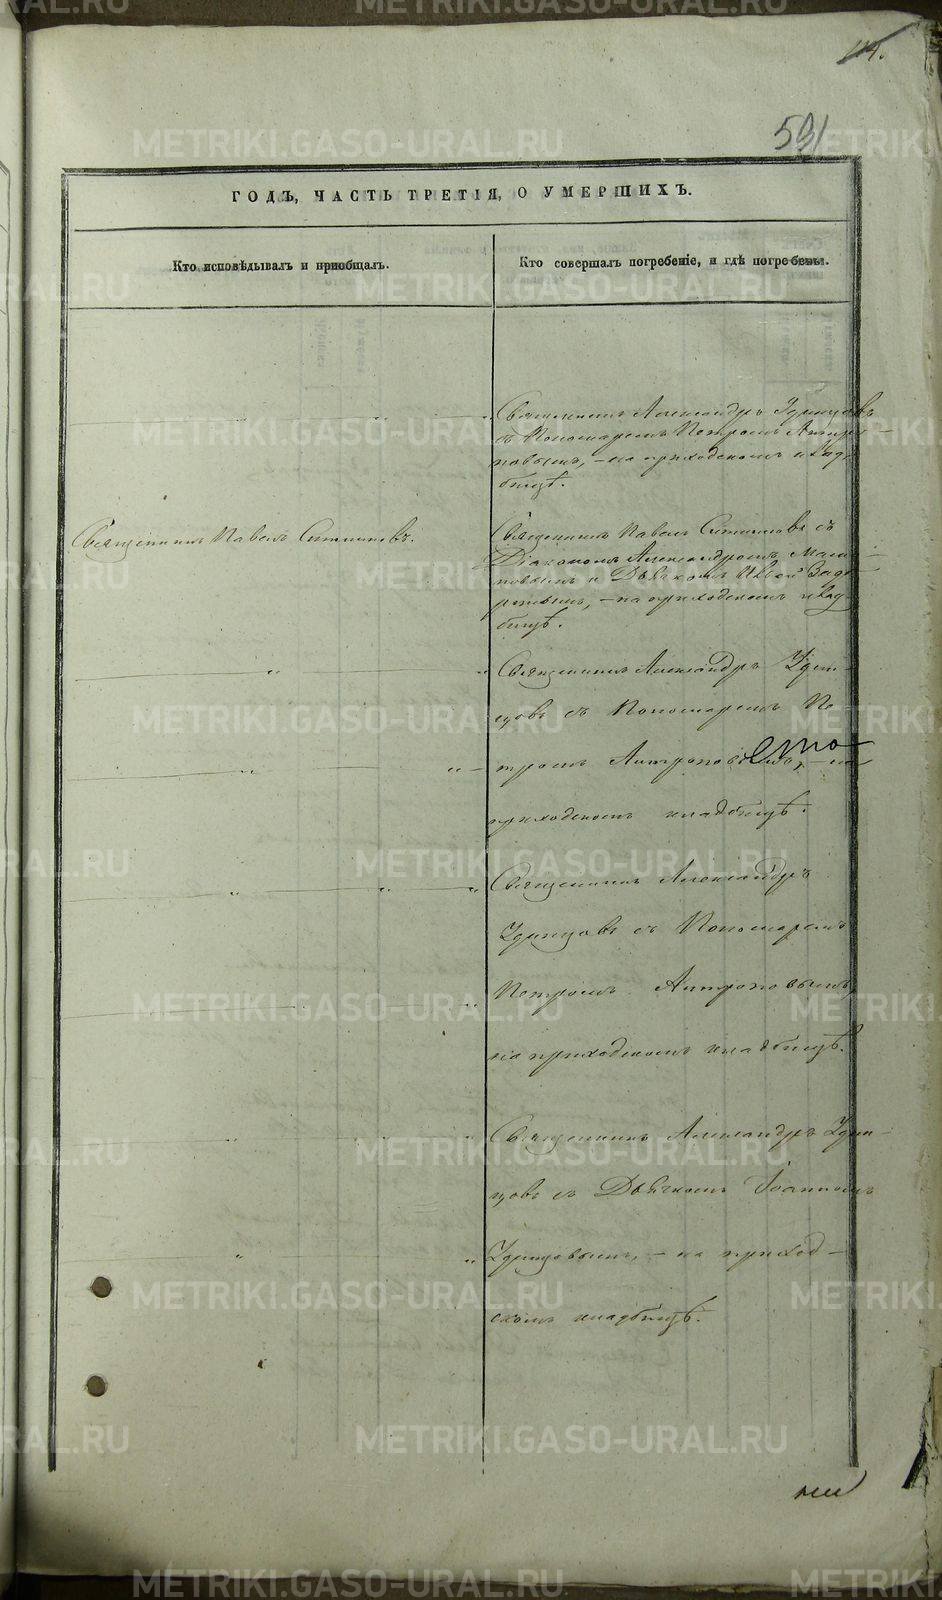 114.
591
ГОДЪ, ЧАСТЬ ТРЕТІЯ, О УМЕРШИХЪ.
Кто исповѣдывалъ и пріобщалъ.
Кто совершалъ погребеніе, и гдѣ погребены.
Священникъ Александръ Удинцовъ
съ Пономаремъ Петромъ Антро-
повымъ, – на приходскомъ клад-
бищѣ.
Священникъ Павелъ
Священникъ Павелъ съ
Діакономъ Александромъ
и Дьячкомъ
– на приходскомъ клад-
бищѣ.
Священникъ Александръ Удин-
цовъ съ Пономаремъ Пе
тромъ Антроповымъ, – на
приходскомъ кладбищѣ.
сто
Священникъ Александръ
Удинцовъ съ Пономаремъ
Петромъ Антроповымъ,
на приходскомъ кладбищѣ.
Священникъ Александръ Удин-
цовъ съ Дьячкомъ Іоанномъ
Удинцовымъ, – на приход-
скомъ кладбищѣ.
METRIKI.GASO-URAL.RU